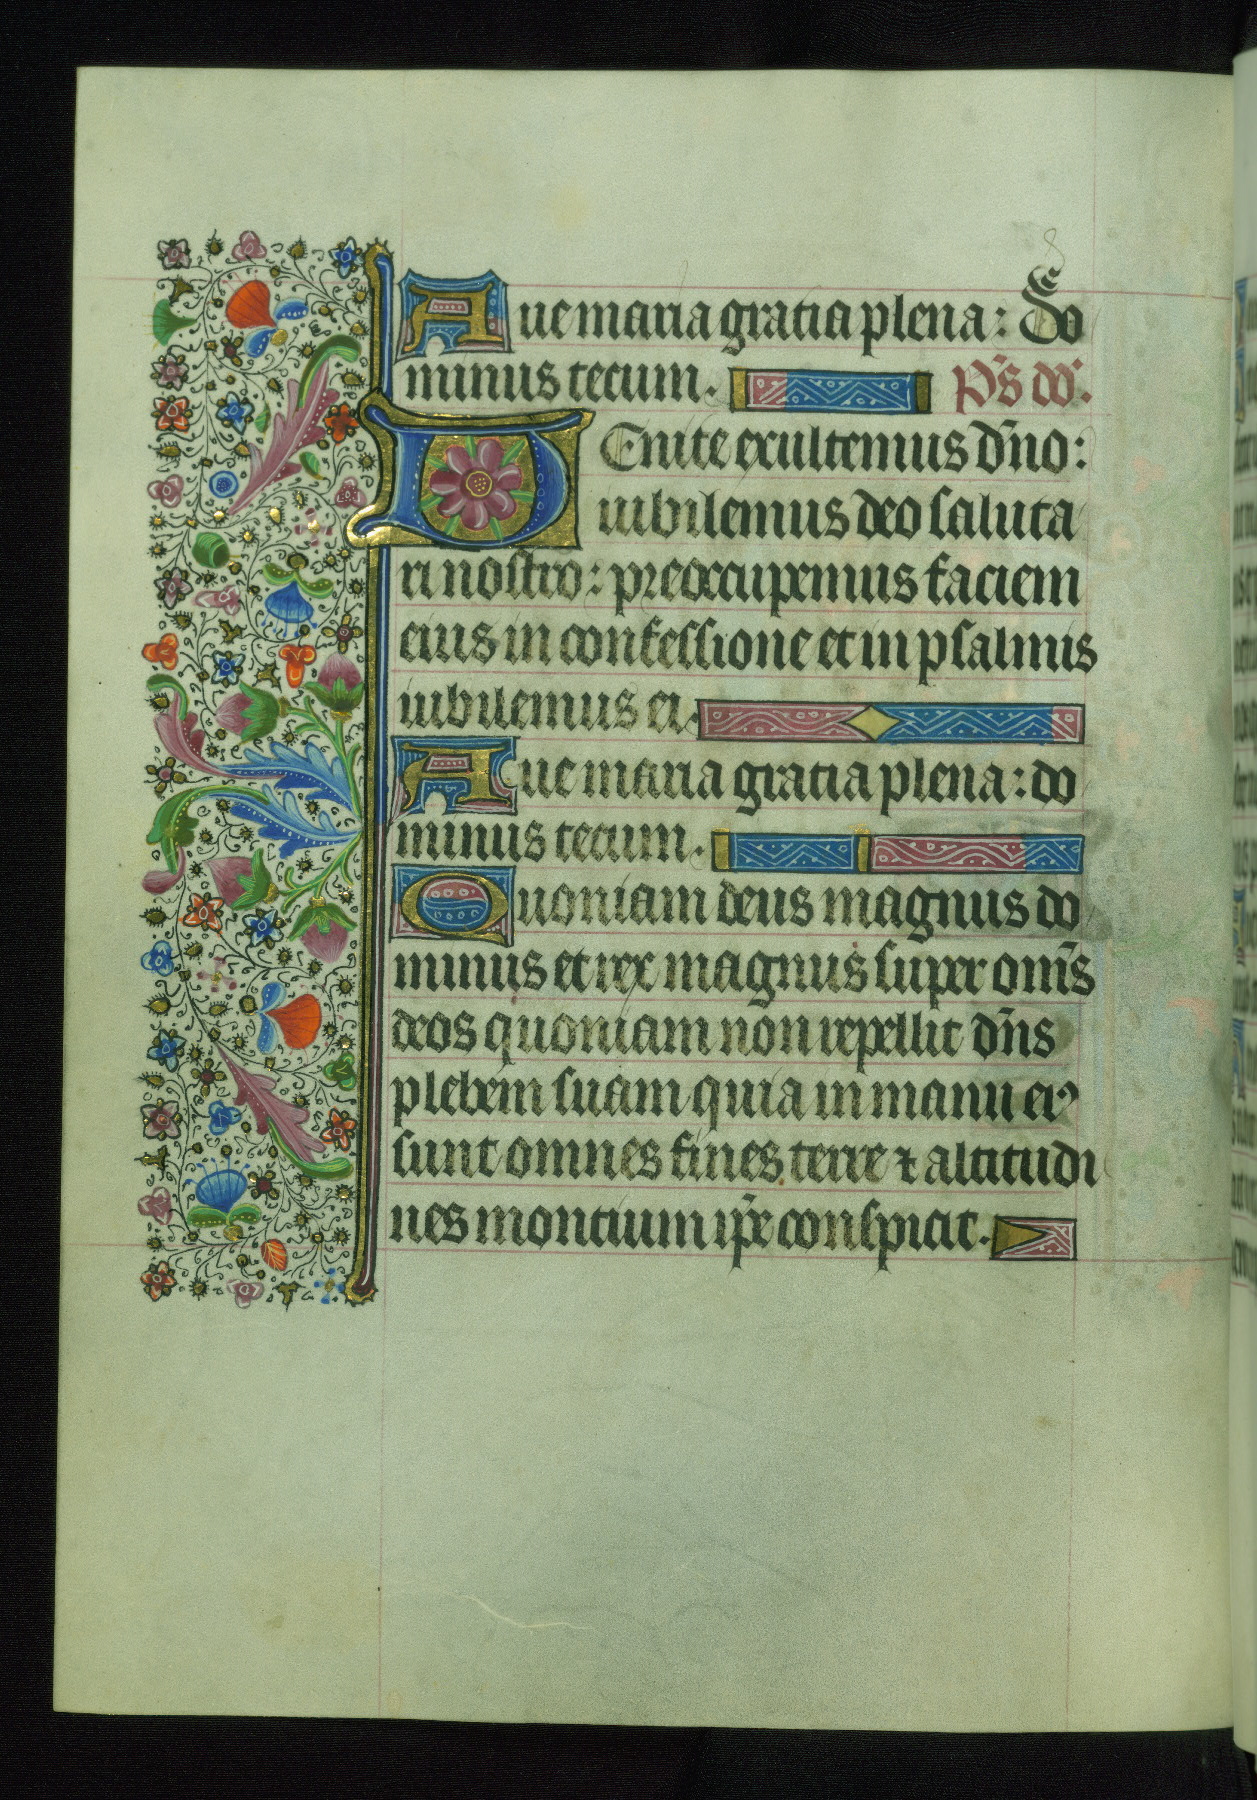 Aue maria gratia plena: Do
minus tecum. p̄s dd.
Venite exultemus dn̄o:
iubilemus deo saluta
ri nostro: preoccupemus faciem
eius in confessione et in psalmis
iubilemus ei.
Aue maria gratia plena: do
minus tecum.
Quoniam deus magnus do
minus et rex magnus super om̄s
deos quoniam non repellit dn̄s
plebem suam quia in manu eiꝰ
sunt omnes fines terre ⁊ altitudi
nes montium ip̄e conspicit.